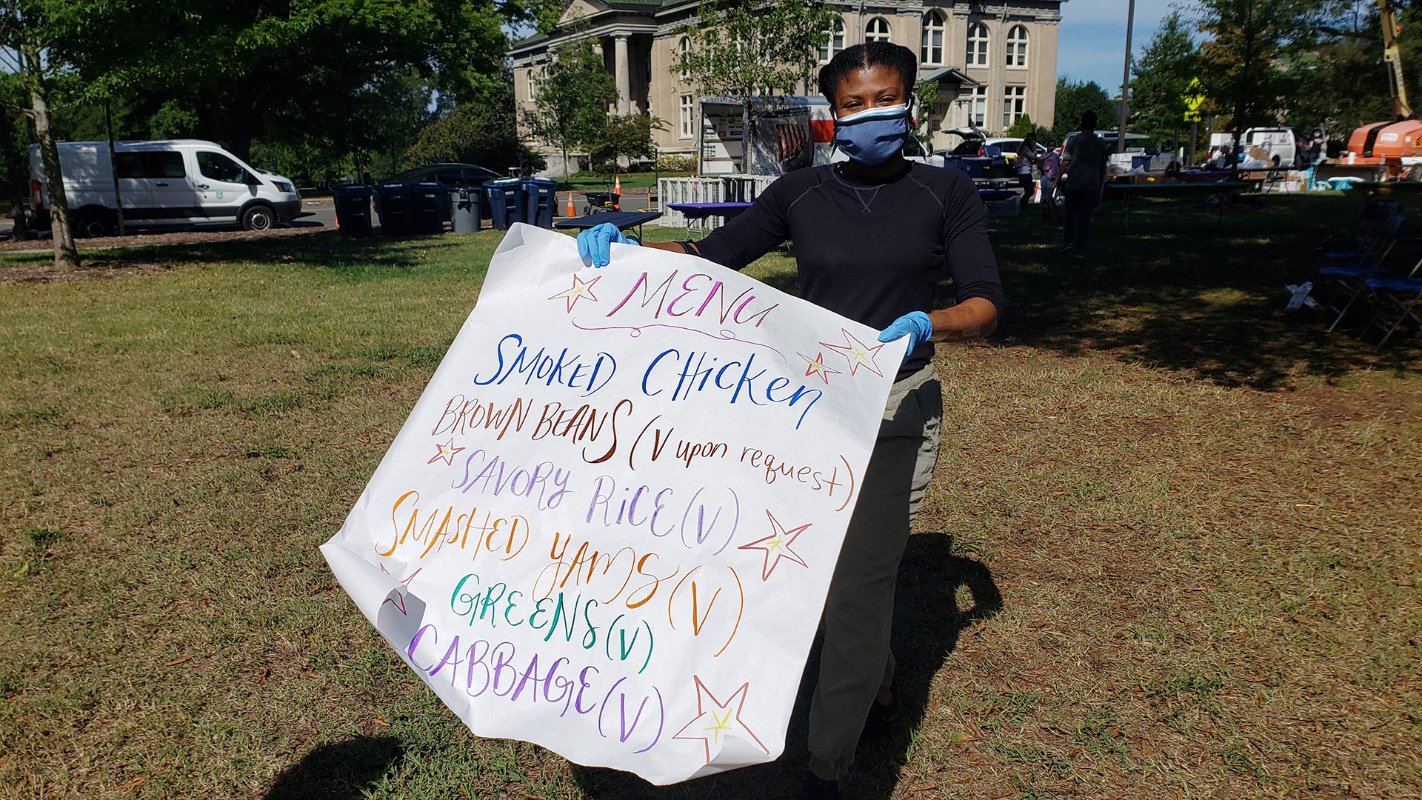 MENU
SMOKED CHicken
BROWN BEANS (V upon request)
SAVORY RiCE (V)
SMASHED YAMS (V)
GREENS (V)
CABBAGE (V)